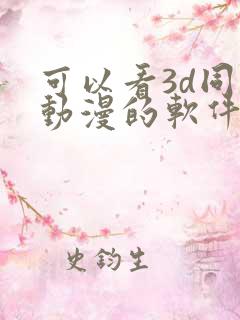 可以看3d同
動漫的軟件
史鈞生